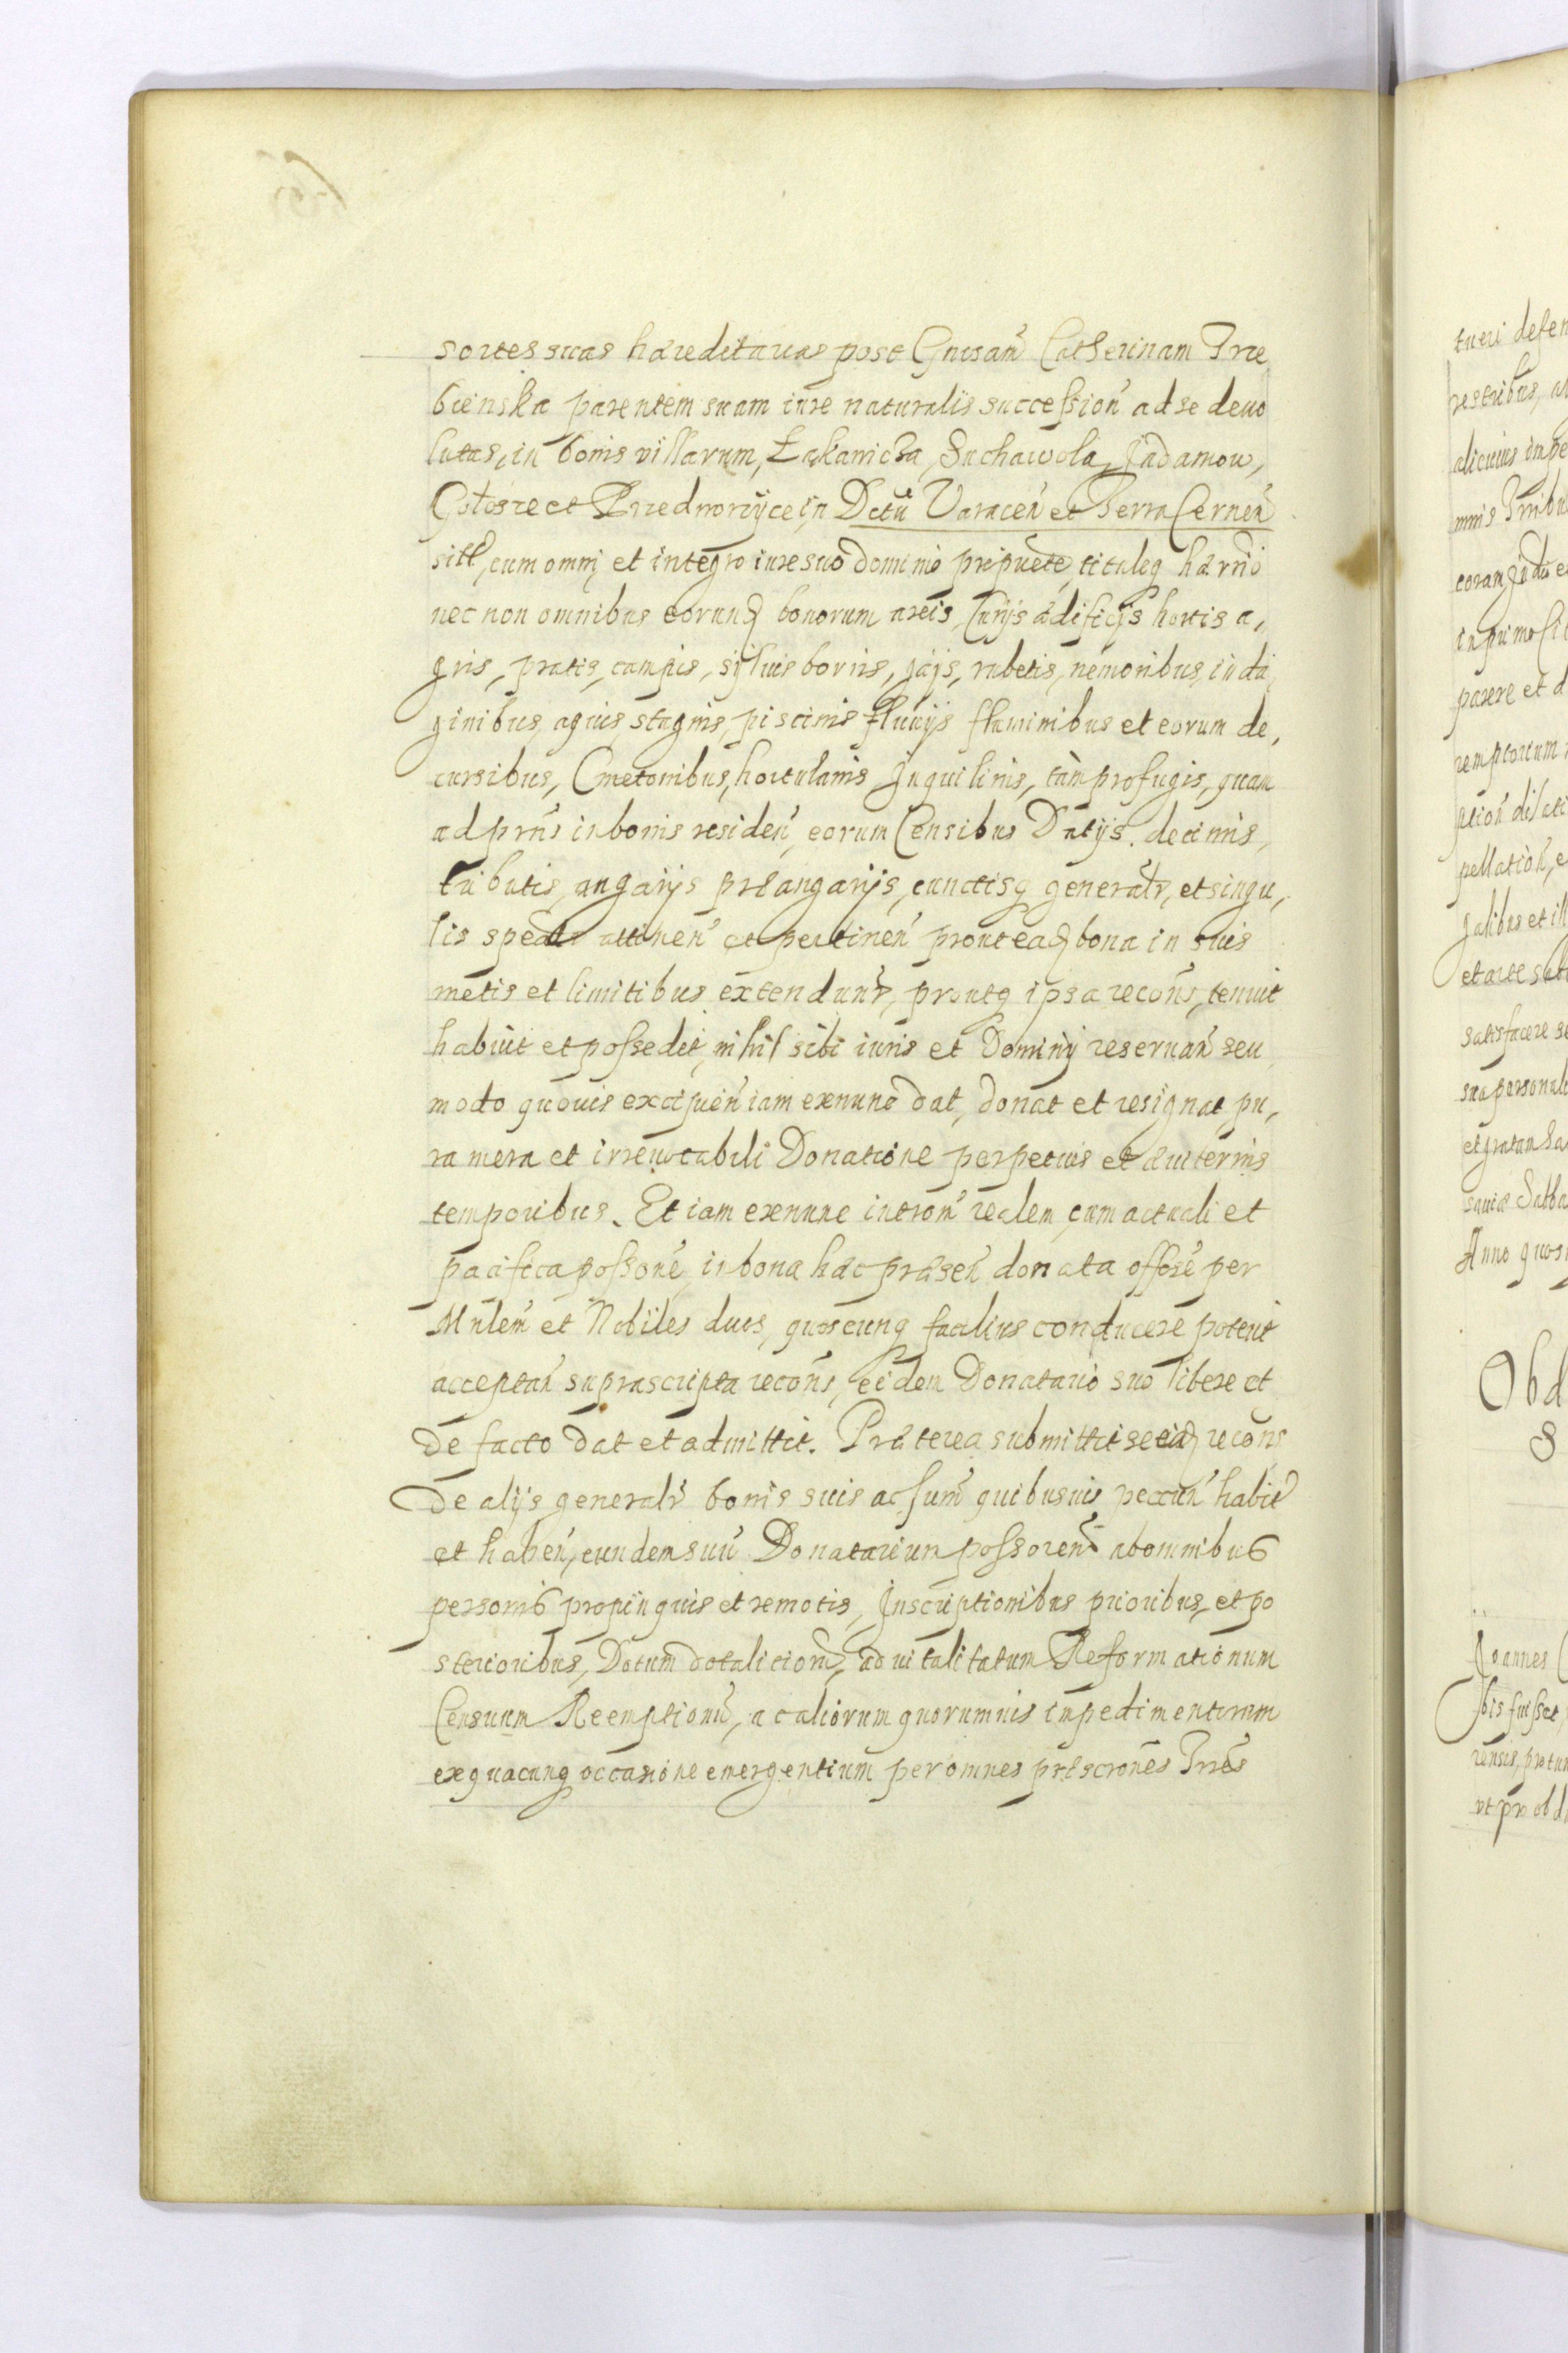 sortes suas hæreditarias post Gnosam̃ Catherinam Trze
bienska parentem suam iure naturalis succession̄ ad se devo
lutas, in bonis villarum, Łękawicza, Suchawola, Jadamow,
et in Dctũ Varacen̄ et Terra Cernen̄
sitt, cum omni et integro iure suo dominio titulog
nec non omnibus eorunđ bonorum areis, Curijs ædificijs hortis a,
gris, pratis, campis, syluis borris, gajs, rubetis, nemoribus, inda
ginibus, aquis stagnis, piscinis fluuijs fluminibus et eorum de,
cursibus, Cmetonibus, hortulanis Inquilinis, tàm profugis, quam
ad prñs in bonis residen̄, eorum Censibus Datijs. decimis,
tributis, angarijs præangarijs, cunctisq generalr̄, et singu,
lis attinen̄ et pertinen̄ prout eađ bona in suis
metis et limitibus extendunr̄, proutq ipsa recon̄s, tenuit
habuit et possedit, nihil sibi iuris et Dominij reseruan̄ seu
modo quouis excipien̄ iam exnunc dat, donat et resignat pu,
ra mera et irreuocabili Donatione perpetuis et æuiternis
temporibus. Et iam exnunc introm̄ realem, cum actuali et
pacifica possone, in bona hæc præsen̄ donata offere per
Mnlem̄ et Nobiles duos, quoscunq facilius conducere poterit
acceptan̄ suprascripta recon̄s, eidem Donatario suo libere et
de facto dat et admittit. Præterea submittit se recon̄s
de alijs generalr̄ bonis suis ac sum̄ quibusuis peccun̄ habit̄
et haben̄, eundem suũ Donatarium possorem̄ ab omnibus
personis propinquis et remotis, Inscriptionibus prioribus, et po
sterioribus, Dotum dotalicionũ, aduitalitatum Reformationum
Censuum Reemptionũ, ac aliorum quorumuis impedimentorum
ex quacunq occasione emergentium per omnes præscrones Trres
tueri defen
alicuius impe
coram Judi e
in primo Ci
parere et d
pellation̄, e
satisfacere se
sua personal
Anno quo
Obd
S
Joannes
bis fuisset